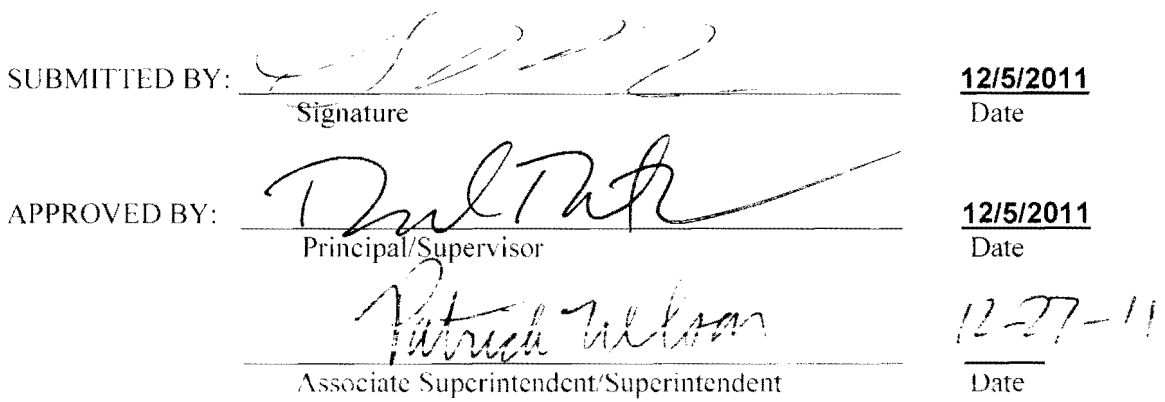 SUBMITTED BY: 12/5/2011
Signature Date
APPROVED BY: 12/5/2011
Principal/Supervisor Date
Patrick Nelson 12-27-11
Associate Superintendent/Superintendent Date